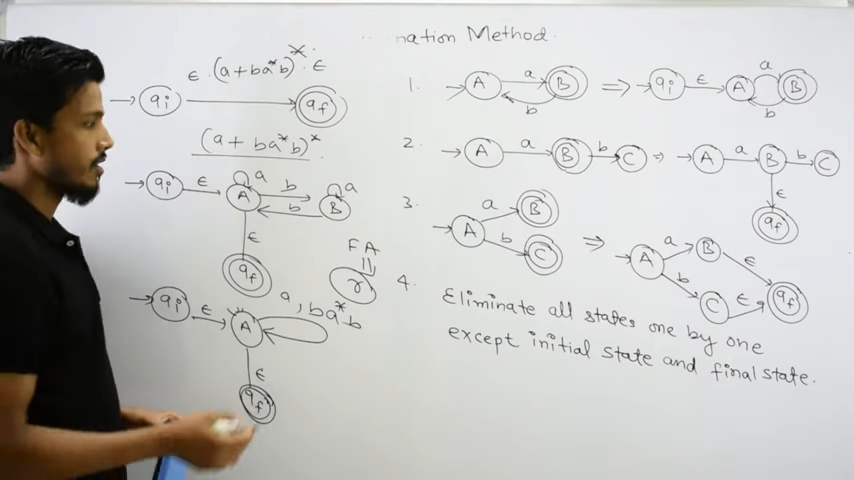 nation Method.
ϵ·(a+ba*b)*·ϵ
qi
qf
(a + ba*b)*
qi ϵ A a b b B a
ϵ
qf
FA
r
qi ϵ A a, ba*b
ϵ
qf
1. A a B b ⇒ qi ϵ A a B b
2. A a B b C ⇒ A a B b C
ϵ
qf
3. A a B b C ⇒ A a B ϵ b C ϵ qf
4. Eliminate all states one by one
except initial state and final state.